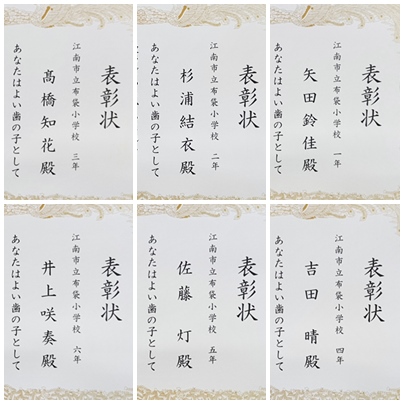 表彰状
江南市立布袋小学校 一年
矢田鈴佳殿
あなたはよい歯の子として
表彰状
江南市立布袋小学校 二年
杉浦結衣殿
あなたはよい歯の子として
表彰状
江南市立布袋小学校 三年
髙橋知花殿
あなたはよい歯の子として
表彰状
江南市立布袋小学校 四年
吉田 晴殿
あなたはよい歯の子として
表彰状
江南市立布袋小学校 五年
佐藤 灯殿
あなたはよい歯の子として
表彰状
江南市立布袋小学校 六年
井上咲奏殿
あなたはよい歯の子として